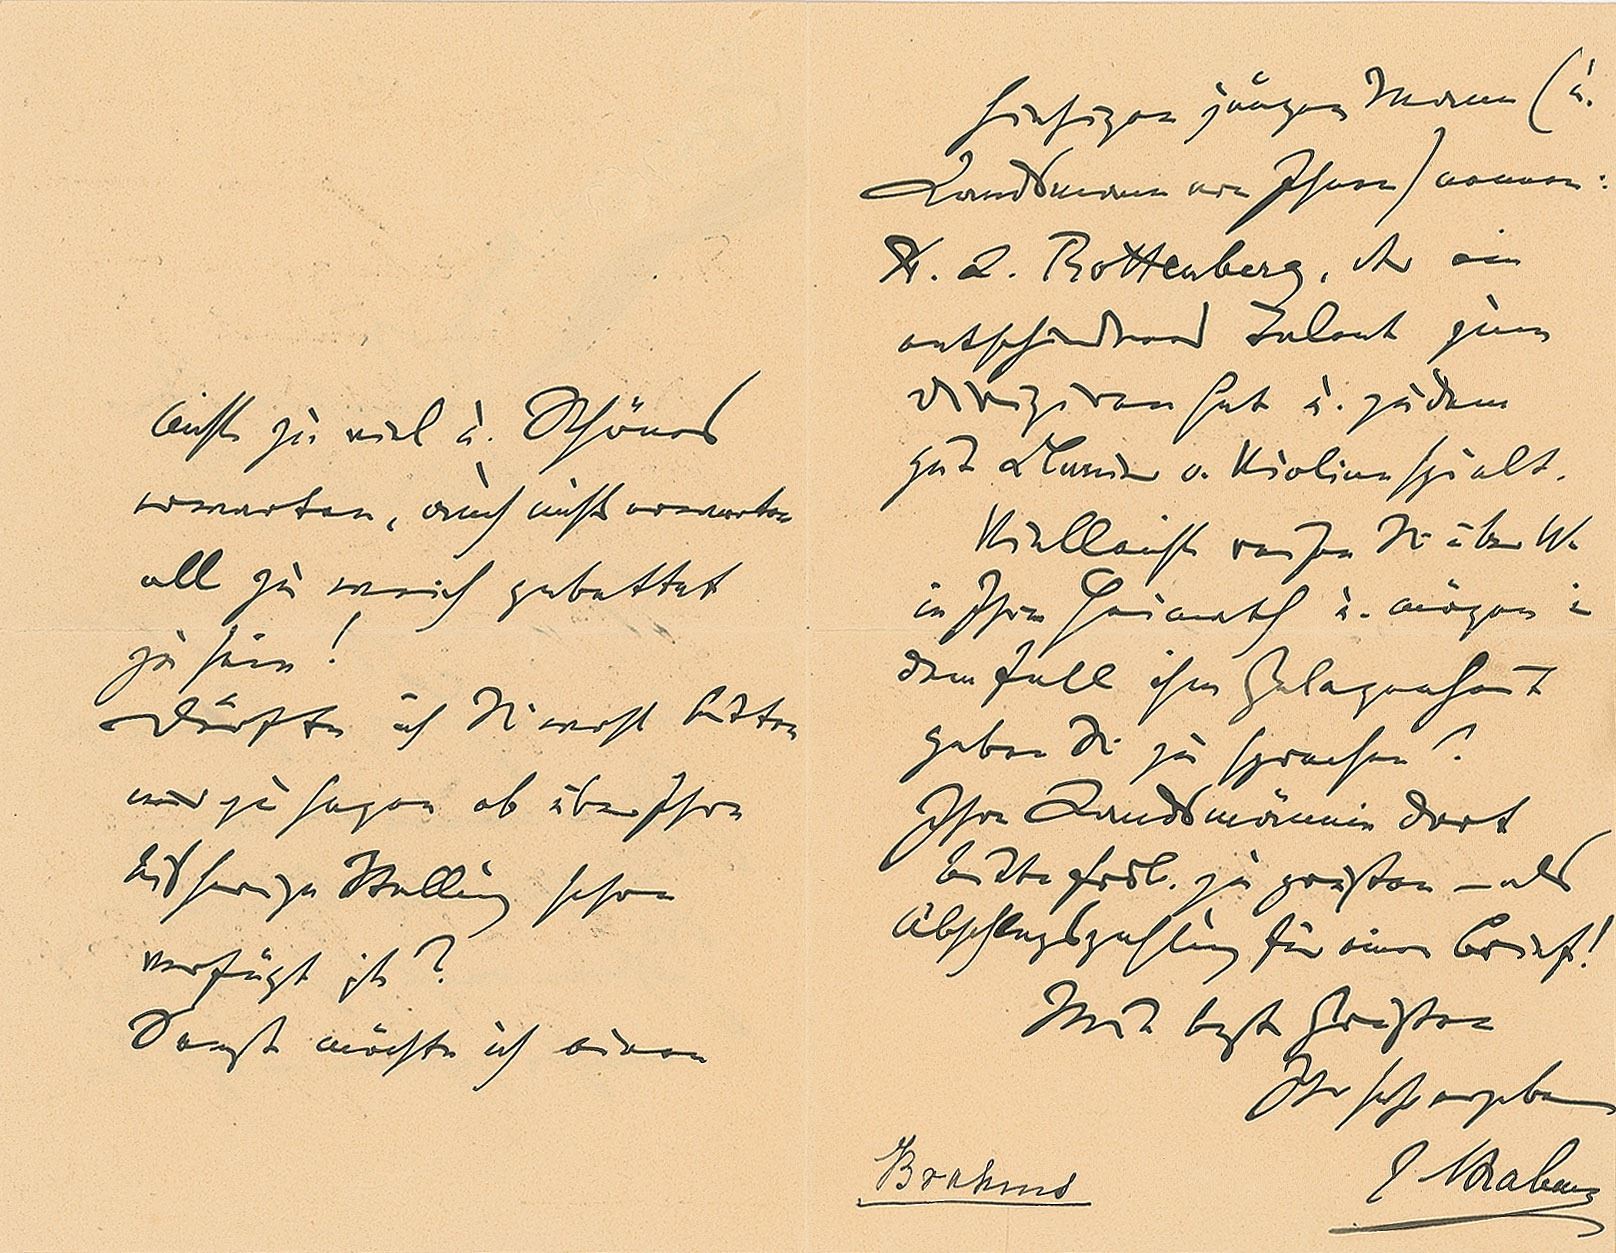 nicht zu viel u. Schönes
erwarten, auch nicht erwarten
all zu weich gebettet
zu sein!
Dürfte ich Sie wohl bitten
mir zu sagen ob über Ihre
bisherige Stellung schon
verfügt ist?
Sonst möchte ich einen
hiesigen jungen Mann (u.
Landsmann von Ihnen) nennen:
Dr. L. Rottenberg, der ein
entschiedenes Talent zum
Dirigiren hat u. zudem
gut Klavier u. Violine spielt.
Vielleicht reisen Sie über W.
in Ihre Heimath u. mögen in
dem Fall ihm Gelegenheit
geben Sie zu sprechen?
Ihre Landsmännin dort
bitte frdl. zu grüßen – als
Abschlagszahlung für einen Brief!
Mit best. Grüßen
Ihr sehr ergebener
J. Brahms
Brahms